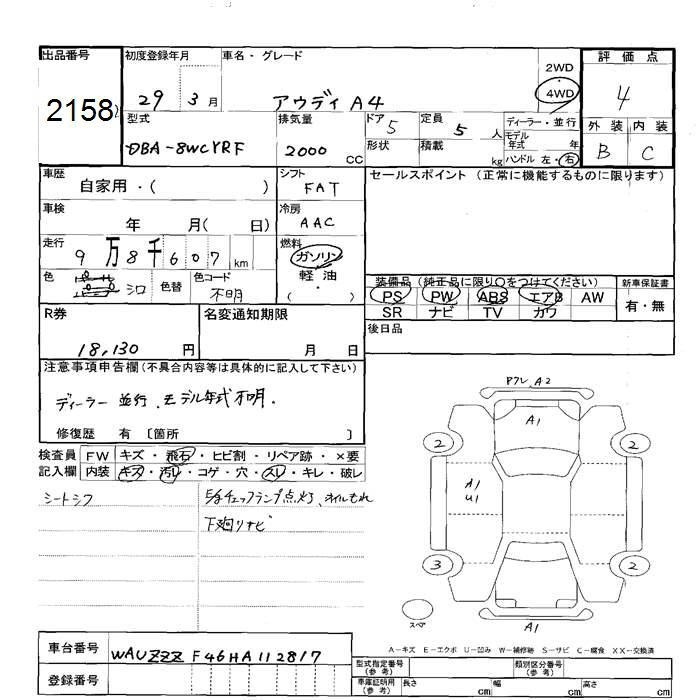 出品番号 初度登録年月 車名・グレード 評価点
2158 29 3月 アウディ A4 2WD 4WD 4
型式 排気量 ドア 5 定員 5人 ディーラー・並行 外装 内装
DBA-8WCYRF 2000 CC 形状 積載 kg モデル年式 年 ハンドル 左・右 B C
車歴 自家用・( ) シフト FAT セールスポイント (正常に機能するものに限ります)
車検 年 月( 日) 冷房 AAC
走行 9万8千607km 燃料 ガソリン
色 シロ 色替 色コード 不明 軽・油 ( )
装備品 (純正品に限り○をつけてください) 新車保証書
PS PW ABS エアB AW 有・無
SR ナビ TV カワ
R券 18,130円 名変通知期限 月 日 後日品
注意事項申告欄(不具合内容等は具体的に記入して下さい)
ディーラー 並行、モデル年式不明.
修復歴 有 〔箇所 〕
検査員 FW キズ・飛石・ヒビ割・リペア跡・×要
記入欄 内装 キズ・汚レ・コゲ・穴・スレ・キレ・破レ
シートシワ チェックランプ点灯、オイルもれ
下廻りサビ
アフレ、A2
A1
2 2
A1
U1
3 2
スペア A1
A-キズ E-エクボ U-凹み W-補修跡 S-サビ C-腐食 XX-交換済
車台番号 WAUZZZF46HA112817 型式指定番号(参考) 類別区分番号(参考)
登録番号 車庫証明用(参考) 長さ cm 幅 cm 高さ cm